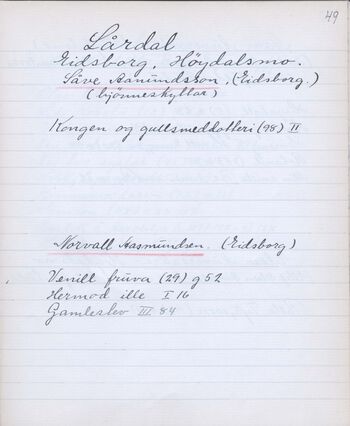 49
Lårdal
Eidsborg, Høydalsmo.
Såve Aamundsson, (Eidsborg.)
(bjønneskyttar)
Kongen og gullsmeddotteri (98) II
Norvall Aasmundsen. (Eidsborg)
Venill fruva (29) g 52
Hermod ille I 16
Gamleslev III 84